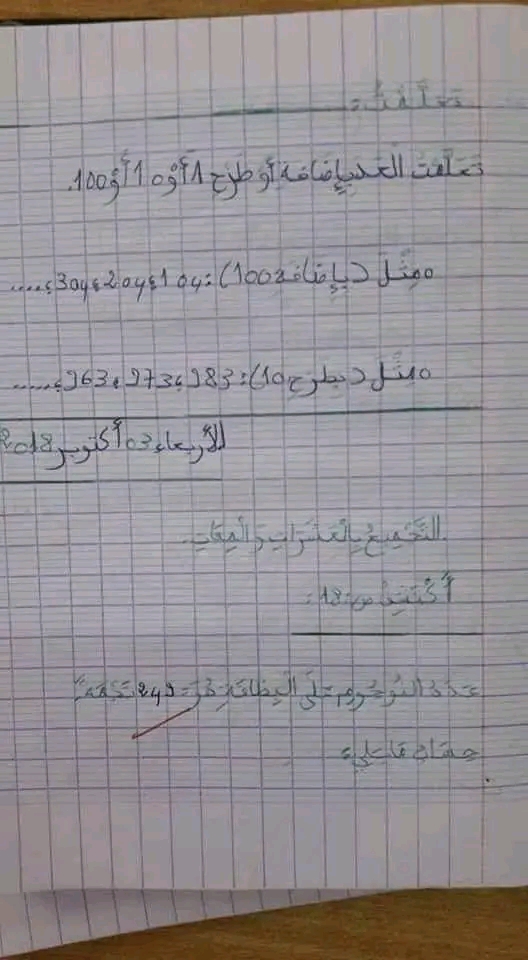 تَعَلَّمْتُ:
تَعَلَّمْتُ الْعَد بِإِضَافَة أَوْ طَرْح 1 أَوْ 10 أَوْ 100.
مِثْل (بِإِضَافة 100): 104، 204، 304، .....
مِثْل (بطرح 10): 283، 273، 263، .....
الأربعاء 03 أكتوبر 2018
التَّجْمِيعُ بِالْعَشَرَاتِ وَالْمِئَاتِ.
أَكْتَشِفُ ص: 18:
عَدَدُ النُّجُومِ عَلَى الْبِطَاقَةِ هُوَ: 249 نَجْمَةً